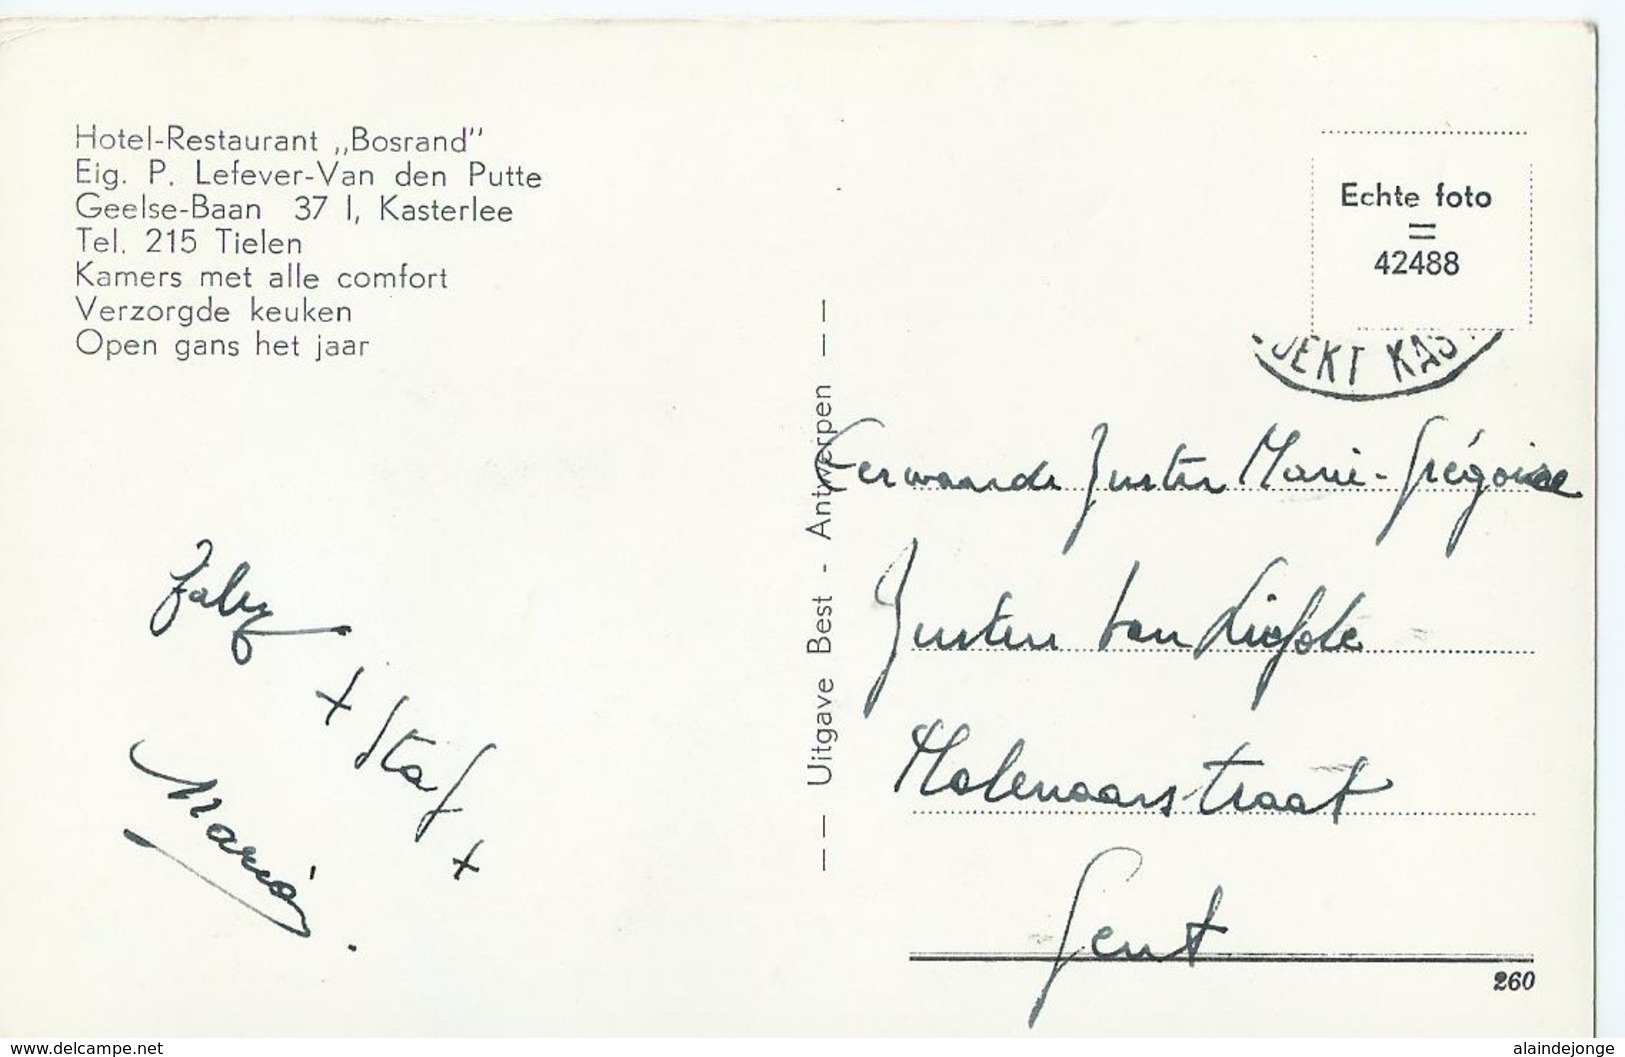 Hotel-Restaurant „Bosrand”
Eig. P. Lefever-Van den Putte
Geelse-Baan 37 I, Kasterlee
Tel. 215 Tielen
Kamers met alle comfort
Verzorgde keuken
Open gans het jaar
Echte foto
=
42488
JEKT KAS
Uitgave Best - Antwerpen
Eerwaarde Zuster Marie-Grégoire
Zusters van Liefde
Molenaarsstraat
Gent
Gaby
+ Staf +
Maria
260
www.delcampe.net
alaindejonge